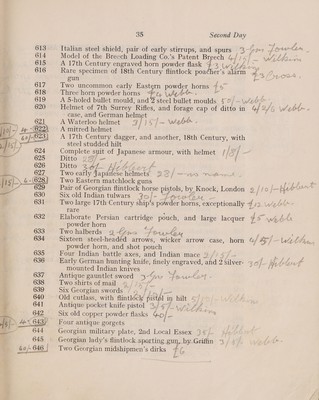 35 Second Day
613 Italian steel shield, pair of early stirrups, and spurs
614 Model of the Breech Loading Co.'s Patent Breech
615 A 17th Century engraved horn powder flask
616 Rare specimen of 18th Century flintlock poacher's alarm
gun
617 Two uncommon early Eastern powder horns £5
618 Three horn powder horns
619 A 5-holed bullet mould, and 2 steel bullet moulds
620 Helmet of 7th Surrey Rifles, and forage cap of ditto in
case, and German helmet
621 A Waterloo helmet Webb
622 A mitred helmet
623 A 17th Century dagger, and another, 18th Century, with
steel studded hilt
624 Complete suit of Japanese armour, with helmet
625 Ditto
626 Ditto Hibbert
627 Two early Japanese helmets
628 Two Eastern matchlock guns
629 Pair of Georgian flintlock horse pistols, by Knock, London
630 Six old Indian tulwars 30/- Fowler
631 Two large 17th Century ship's powder horns, exceptionally
rare
632 Elaborate Persian cartridge pouch, and large lacquer
powder horn
633 Two halberds Fowler
634 Sixteen steel-headed arrows, wicker arrow case, horn
powder horn, and shot pouch
635 Four Indian battle axes, and Indian mace
636 Early German hunting knife, finely engraved, and 2 silver-
mounted Indian knives
637 Antique gauntlet sword Fowler
638 Two shirts of mail
639 Six Georgian swords
640 Old cutlass, with flintlock pistol in hilt
641 Antique pocket knife pistol
642 Six old copper powder flasks 40/-
643 Four antique gorgets
644 Georgian military plate, 2nd Local Essex
645 Georgian lady's flintlock aparting gun, by Griffin
646 Two Georgian midshipmen's dirks £6